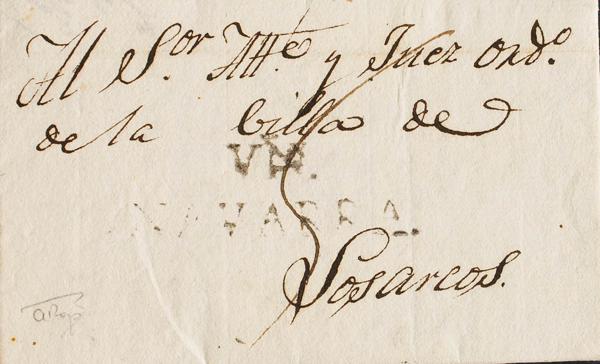 Al S.or Alle y Juez ord.o
de la billa de
VN.
NAVARRA.
Losarcos.